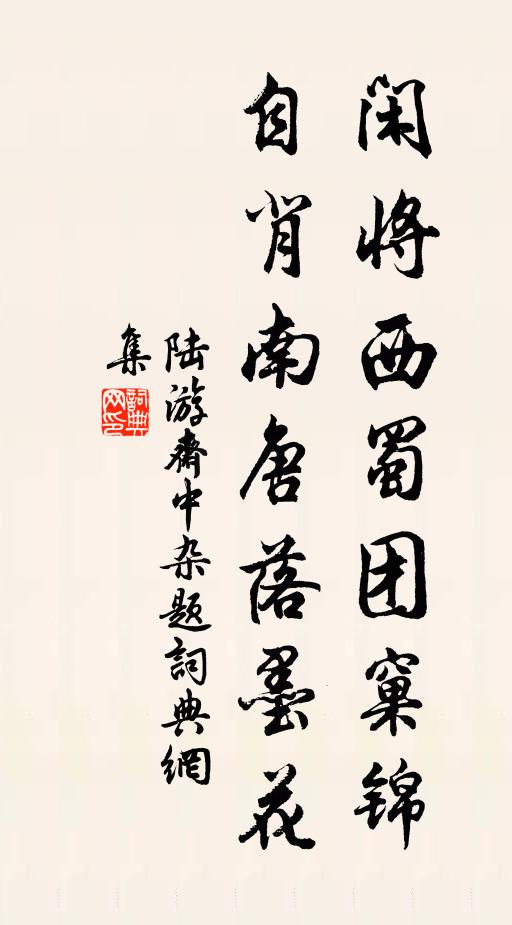 闲將西蜀团窠锦
自背南唐落墨花
陆游齋中杂题詞典網
集
詞典
网印